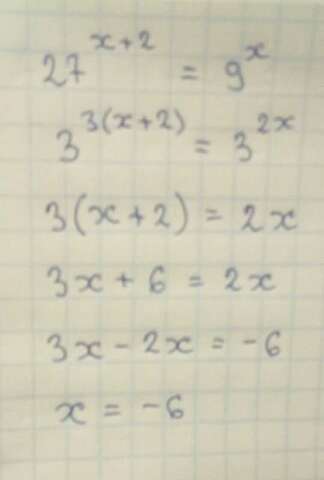 27^{x+2} = 9^x
3^{3(x+2)} = 3^{2x}
3(x+2) = 2x
3x + 6 = 2x
3x - 2x = -6
x = -6